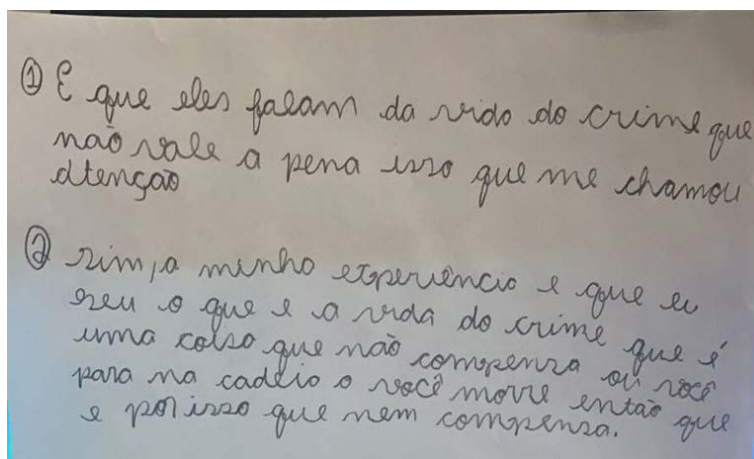 ① E que eles falam da vida do crime que
não vale a pena isso que me chamou
atenção
② sim, a minha experiência e que eu
seu o que e a vida do crime que é
uma coisa que não compensa ou você
para na cadeia o você morre então que
e por isso que nem compensa.